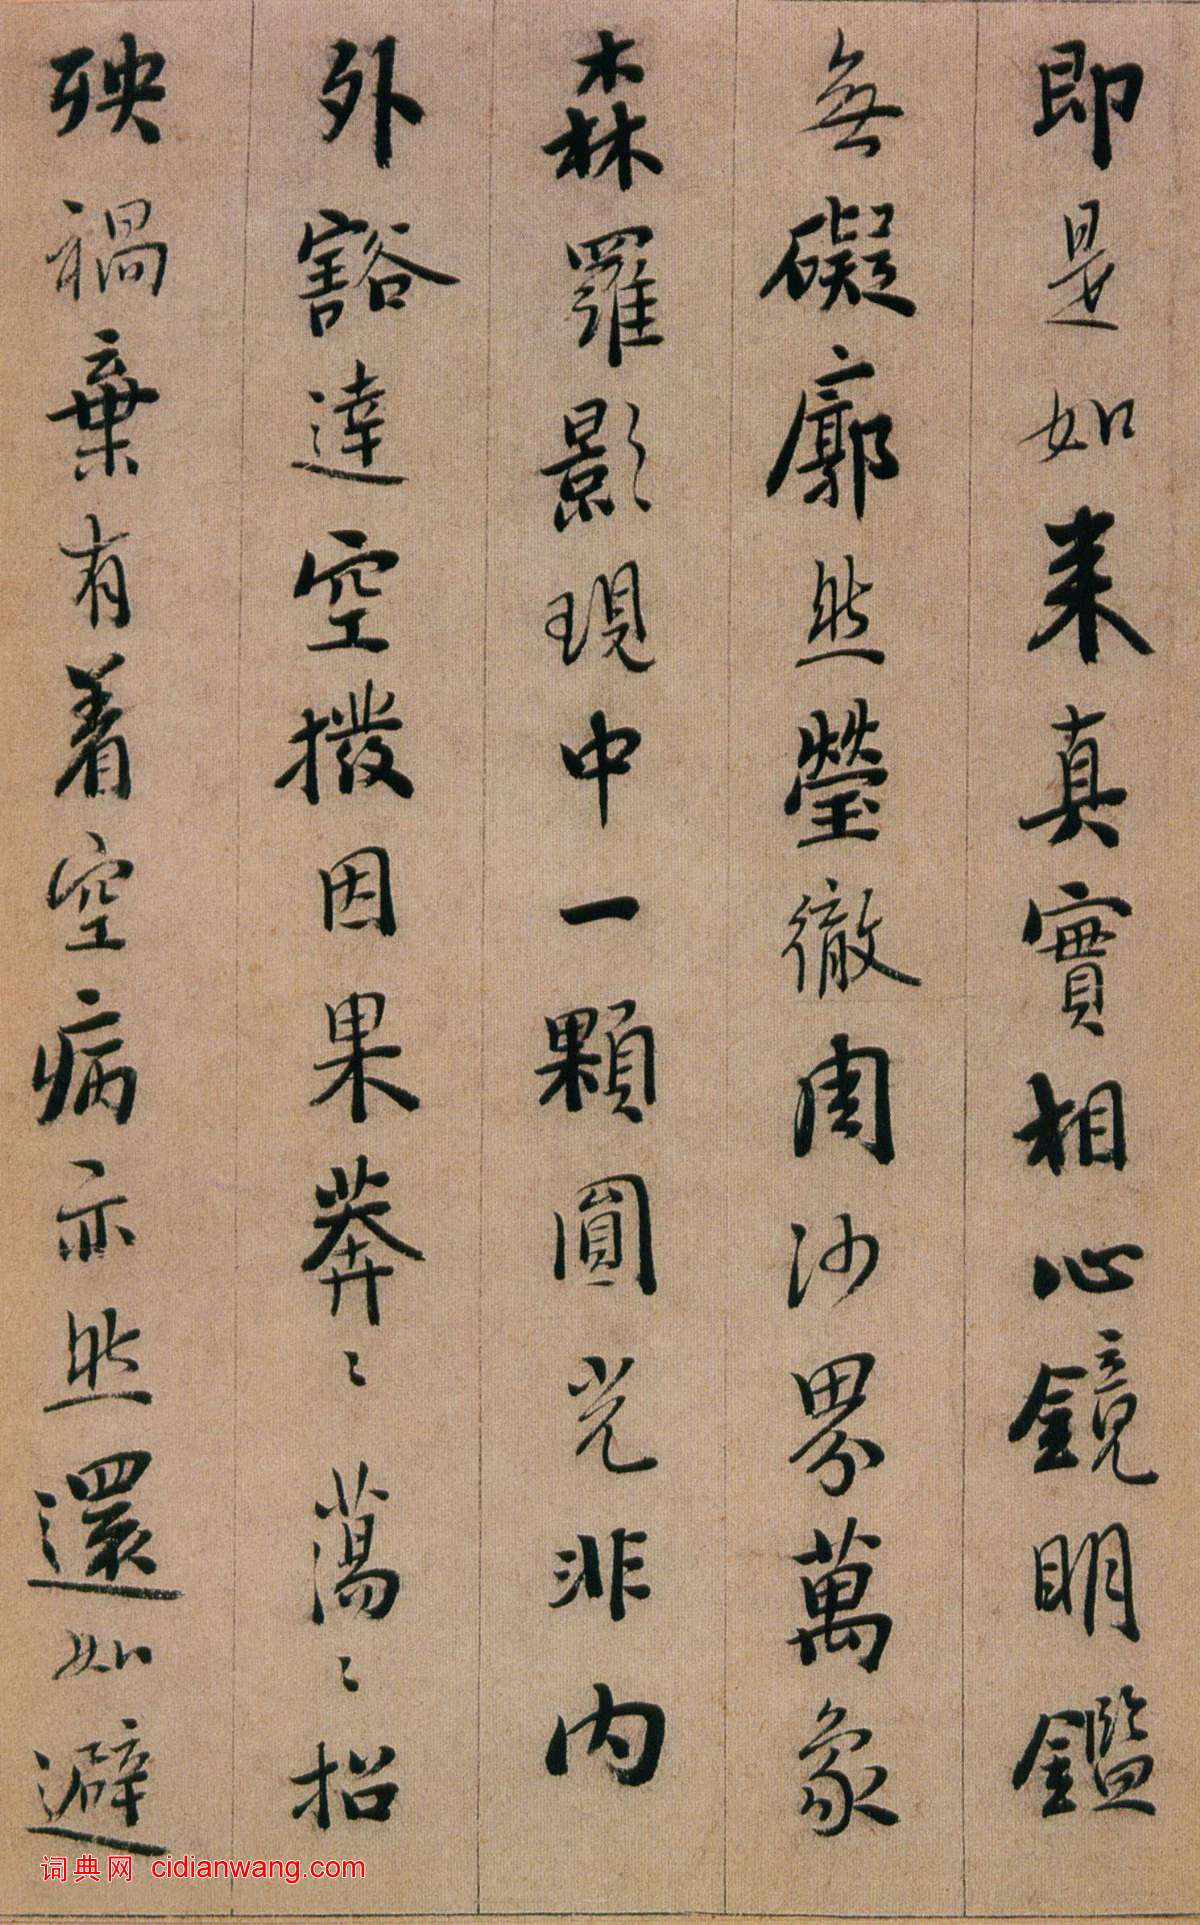 即是如来真實相心鏡明鑑
無礙廓然瑩徹周沙界萬象
森羅影現中一顆圓光非内
外豁達空撥因果莽〻蕩〻招
殃禍棄有着空病亦然還如避
词典网 cidianwang.com